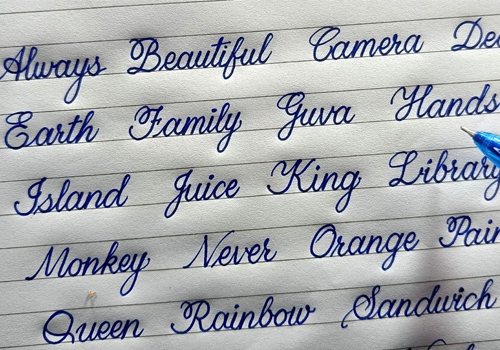 Always Beautiful Camera De
Earth Family Guva Hands
Island Juice King Library
Monkey Never Orange Pain
Queen Rainbow Sandwich